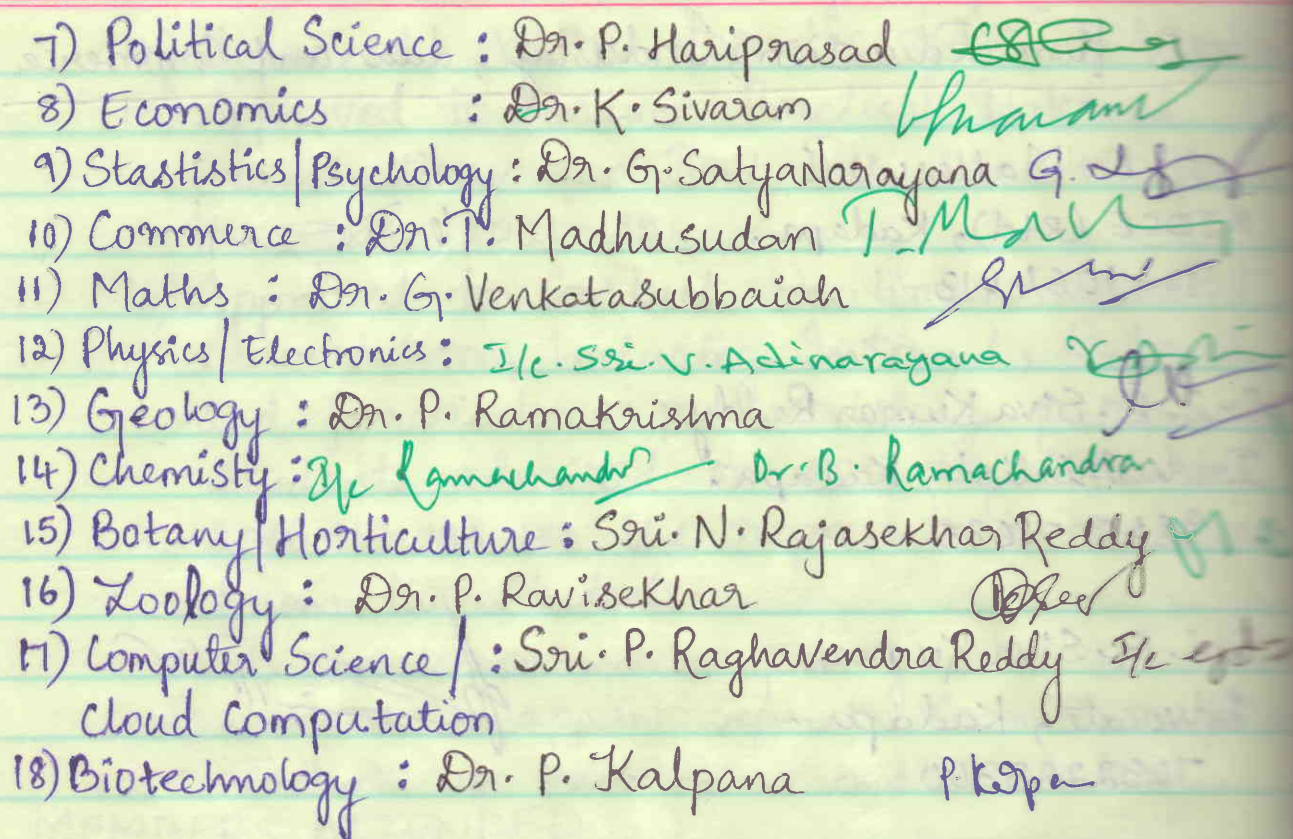 7) Political Science : Dr. P. Hariprasad
8) Economics : Dr. K. Sivaram
9) Stastistics/Psychology : Dr. G. SatyaNarayana G.
10) Commerce : Dr. T. Madhusudan
11) Maths : Dr. G. Venkatasubbaiah
12) Physics/Electronics : I/c. Sri. V. Adinarayana
13) Geology : Dr. P. Ramakrishna
14) Chemisty : I/c Ramachandra Dr. B. Ramachandra
15) Botany/Horticulture : Sri. N. Rajasekhar Reddy
16) Zoology : Dr. P. Ravisekhar
17) Computer Science/ : Sri. P. Raghavendra Reddy I/c
Cloud Computation
18) Biotechnology : Dr. P. Kalpana